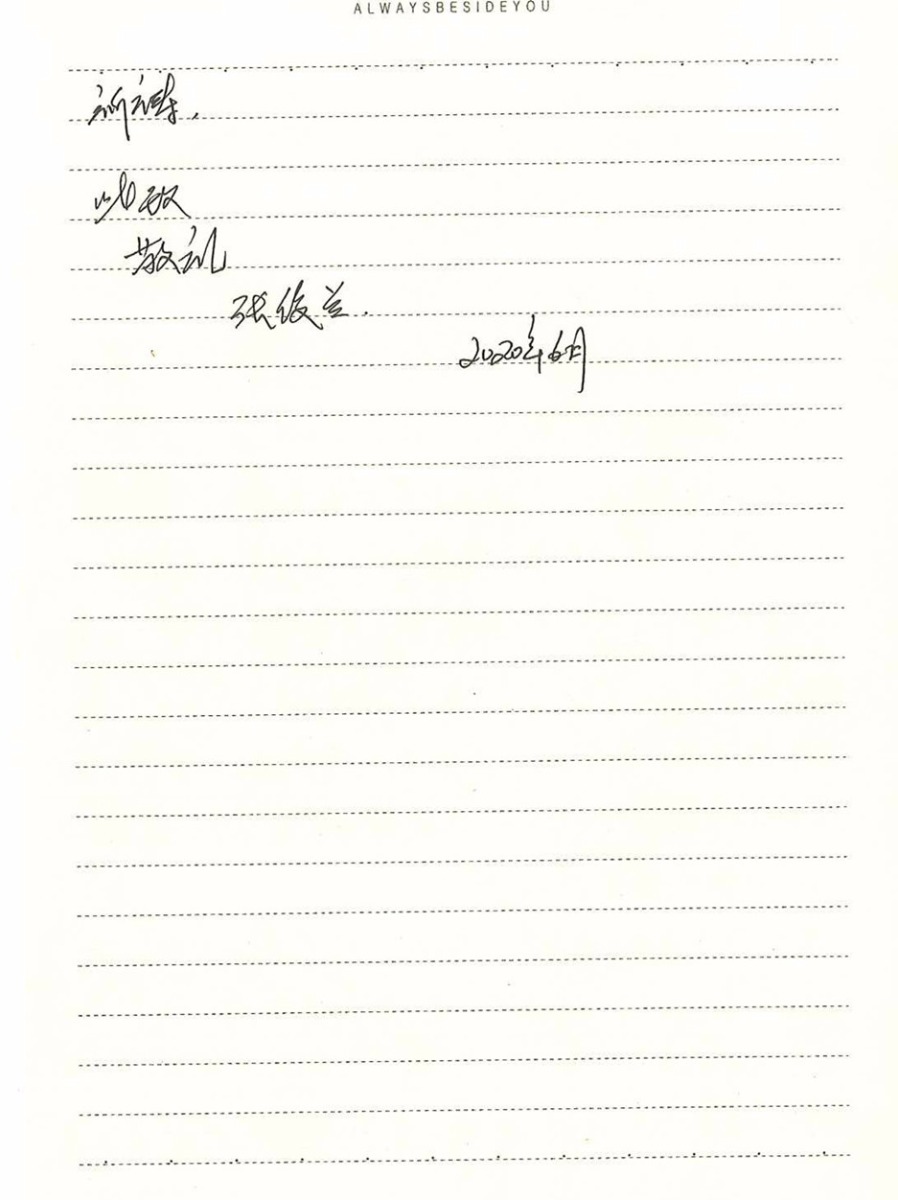 ALWAYSBESIDEYOU
祈祷.
此致
敬礼
张俊兰.
2020年6月